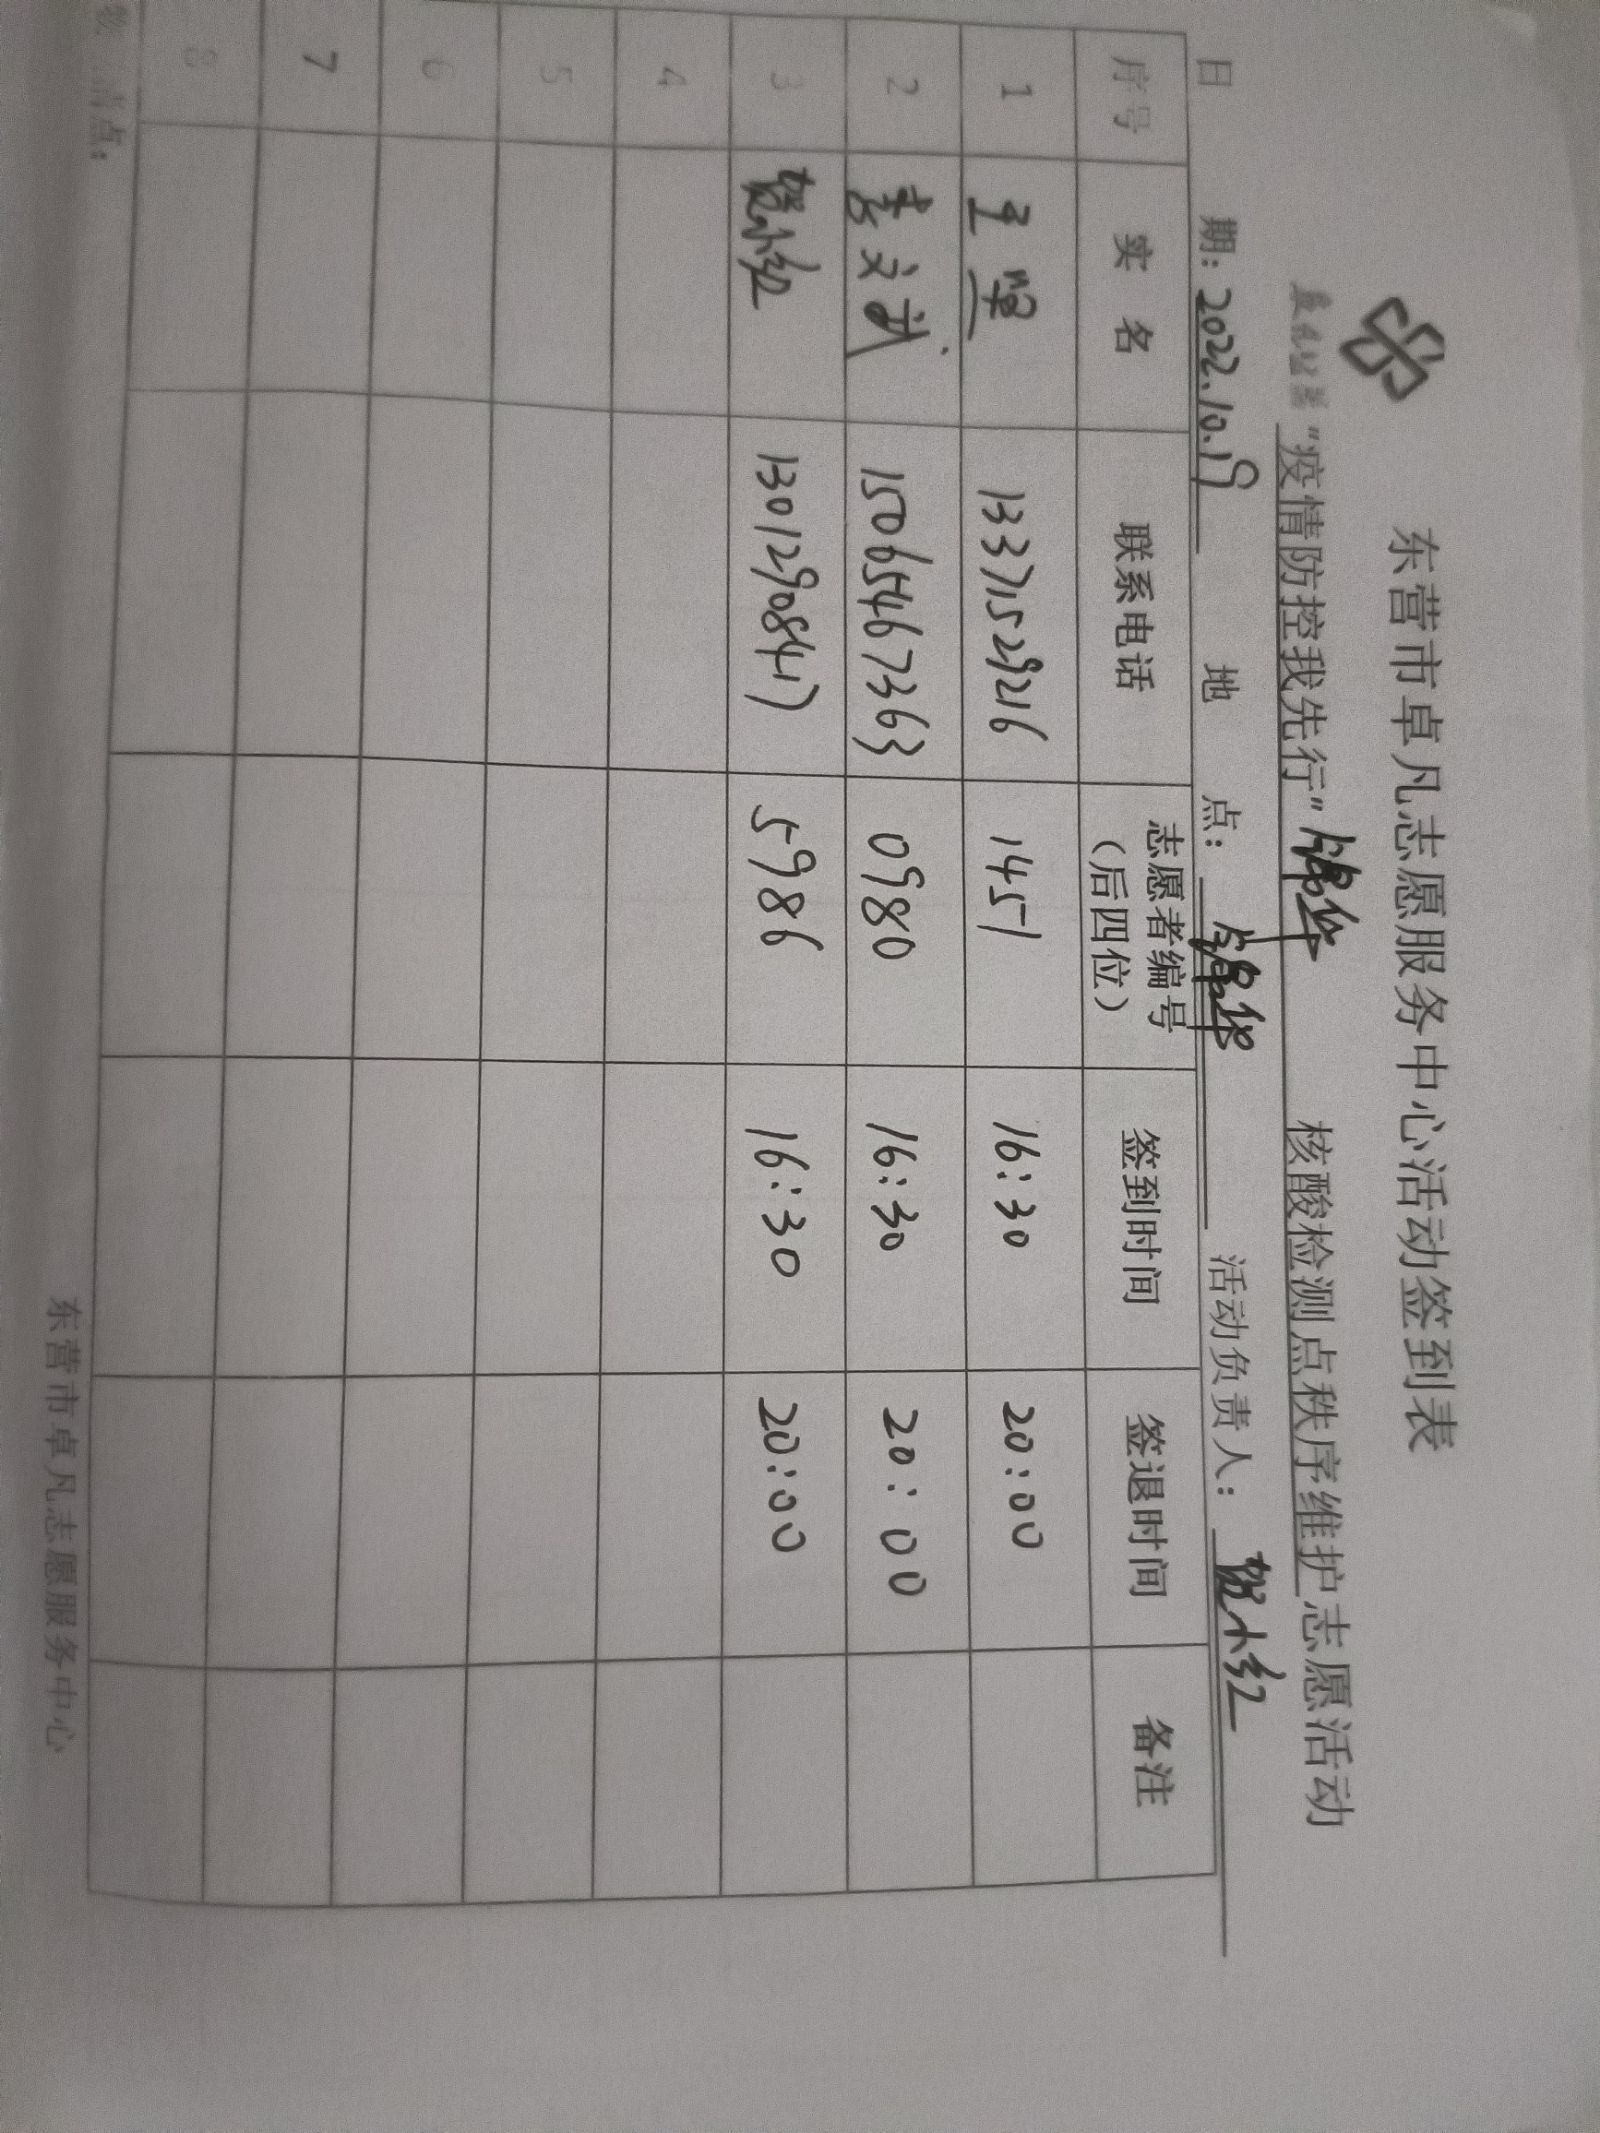 东营市卓凡志愿服务中心活动签到表
“疫情防控我先行”锦华 核酸检测点秩序维护志愿活动
日 期:2022.10.19 地 点:锦华 活动负责人:贺小红
序号 实 名 联系电话 志愿者编号(后四位) 签到时间 签退时间 备注
1 王 13371529216 1451 16:30 20:00
2 李文武 15065467363 0980 16:30 20:00
3 贺小红 13012908417 5986 16:30 20:00
4
5
6
7
8
东营市卓凡志愿服务中心